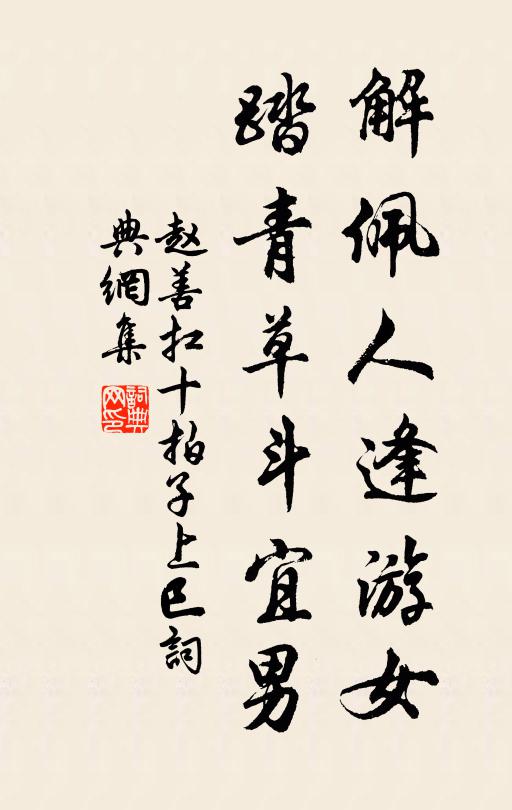 解佩人逢游女
踏青草斗宜男
赵善扛十拍子上巳詞
典網集
詞典
网印